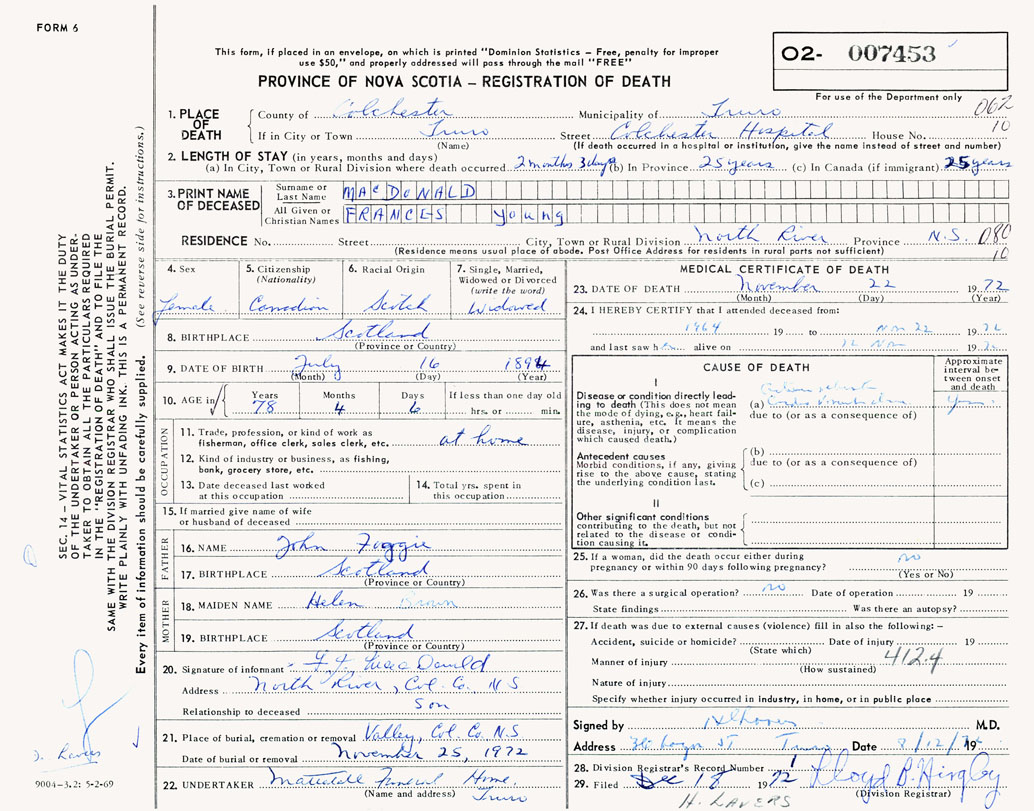 FORM 6
This form, if placed in an envelope, on which is printed "Dominion Statistics – Free, penalty for improper
use $50," and properly addressed will pass through the mail "FREE"
PROVINCE OF NOVA SCOTIA – REGISTRATION OF DEATH
O2- 007453
For use of the Department only
062
10
1. PLACE OF DEATH
County of Colchester Municipality of Truro
If in City or Town Truro Street Colchester Hospital House No.
(Name) (If death occurred in a hospital or institution, give the name instead of street and number)
2. LENGTH OF STAY (in years, months and days)
(a) In City, Town or Rural Division where death occurred 2 months 3 days (b) In Province 25 years (c) In Canada (if immigrant) 25 years
3. PRINT NAME OF DECEASED
Surname or Last Name MACDONALD
All Given or Christian Names FRANCES Young
RESIDENCE No. Street City, Town or Rural Division North River Province N.S. 080
10
(Residence means usual place of abode. Post Office Address for residents in rural parts not sufficient)
4. Sex
Female
5. Citizenship
(Nationality)
Canadian
6. Racial Origin
Scotch
7. Single, Married,
Widowed or Divorced
(write the word)
Widowed
8. BIRTHPLACE Scotland
(Province or Country)
9. DATE OF BIRTH July 16 1894
(Month) (Day) (Year)
10. AGE in
Years Months Days If less than one day old
78 4 6 hrs. or min.
OCCUPATION
11. Trade, profession, or kind of work as
fisherman, office clerk, sales clerk, etc. at home
12. Kind of industry or business, as fishing,
bank, grocery store, etc.
13. Date deceased last worked
at this occupation
14. Total yrs. spent in
this occupation
15. If married give name of wife
or husband of deceased
FATHER
16. NAME John Foggie
17. BIRTHPLACE Scotland
(Province or Country)
MOTHER
18. MAIDEN NAME Helen Brown
19. BIRTHPLACE Scotland
(Province or Country)
20. Signature of informant MacDonald
Address North River, Col. Co. N S
Relationship to deceased Son
21. Place of burial, cremation or removal Valley, Col Co. N.S
Date of burial or removal November 25, 1972
22. UNDERTAKER Funeral Home,
(Name and address) Truro
MEDICAL CERTIFICATE OF DEATH
23. DATE OF DEATH November 22 1972
(Month) (Day) (Year)
24. I HEREBY CERTIFY that I attended deceased from:
1964 19 to Nov 22 1972
and last saw her alive on Nov 1972
CAUSE OF DEATH
Approximate
interval be-
tween onset
and death
I
Disease or condition directly lead-
ing to death (This does not mean
the mode of dying, e.g., heart fail-
ure, asthenia, etc. It means the
disease, injury, or complication
which caused death.)
(a)
due to (or as a consequence of)
Antecedent causes
Morbid conditions, if any, giving
rise to the above cause, stating
the underlying condition last.
(b)
due to (or as a consequence of)
(c)
II
Other significant conditions
contributing to the death, but not
related to the disease or condi-
tion causing it.
25. If a woman, did the death occur either during
pregnancy or within 90 days following pregnancy? no
(Yes or No)
26. Was there a surgical operation? no Date of operation 19
State findings Was there an autopsy?
27. If death was due to external causes (violence) fill in also the following: –
Accident, suicide or homicide? Date of injury 19
(State which)
Manner of injury 412.4
(How sustained)
Nature of injury
Specify whether injury occurred in industry, in home, or in public place
Signed by M.D.
Address ST Truro Date 8/12/72 19
28. Division Registrar's Record Number
29. Filed Dec 18 1972 Lloyd B.
(Division Registrar)
H. LAVERS
SEC. 14 – VITAL STATISTICS ACT MAKES IT THE DUTY
OF THE UNDERTAKER OR PERSON ACTING AS UNDER-
TAKER TO OBTAIN ALL THE PARTICULARS REQUIRED
IN THE "REGISTRATION OF DEATH" AND TO FILE THE
SAME WITH THE DIVISION REGISTRAR WHO SHALL ISSUE THE BURIAL PERMIT.
WRITE PLAINLY WITH UNFADING INK. THIS IS A PERMANENT RECORD.
Every item of information should be carefully supplied. (See reverse side for instructions.)
9004–3.2: 5-2-69